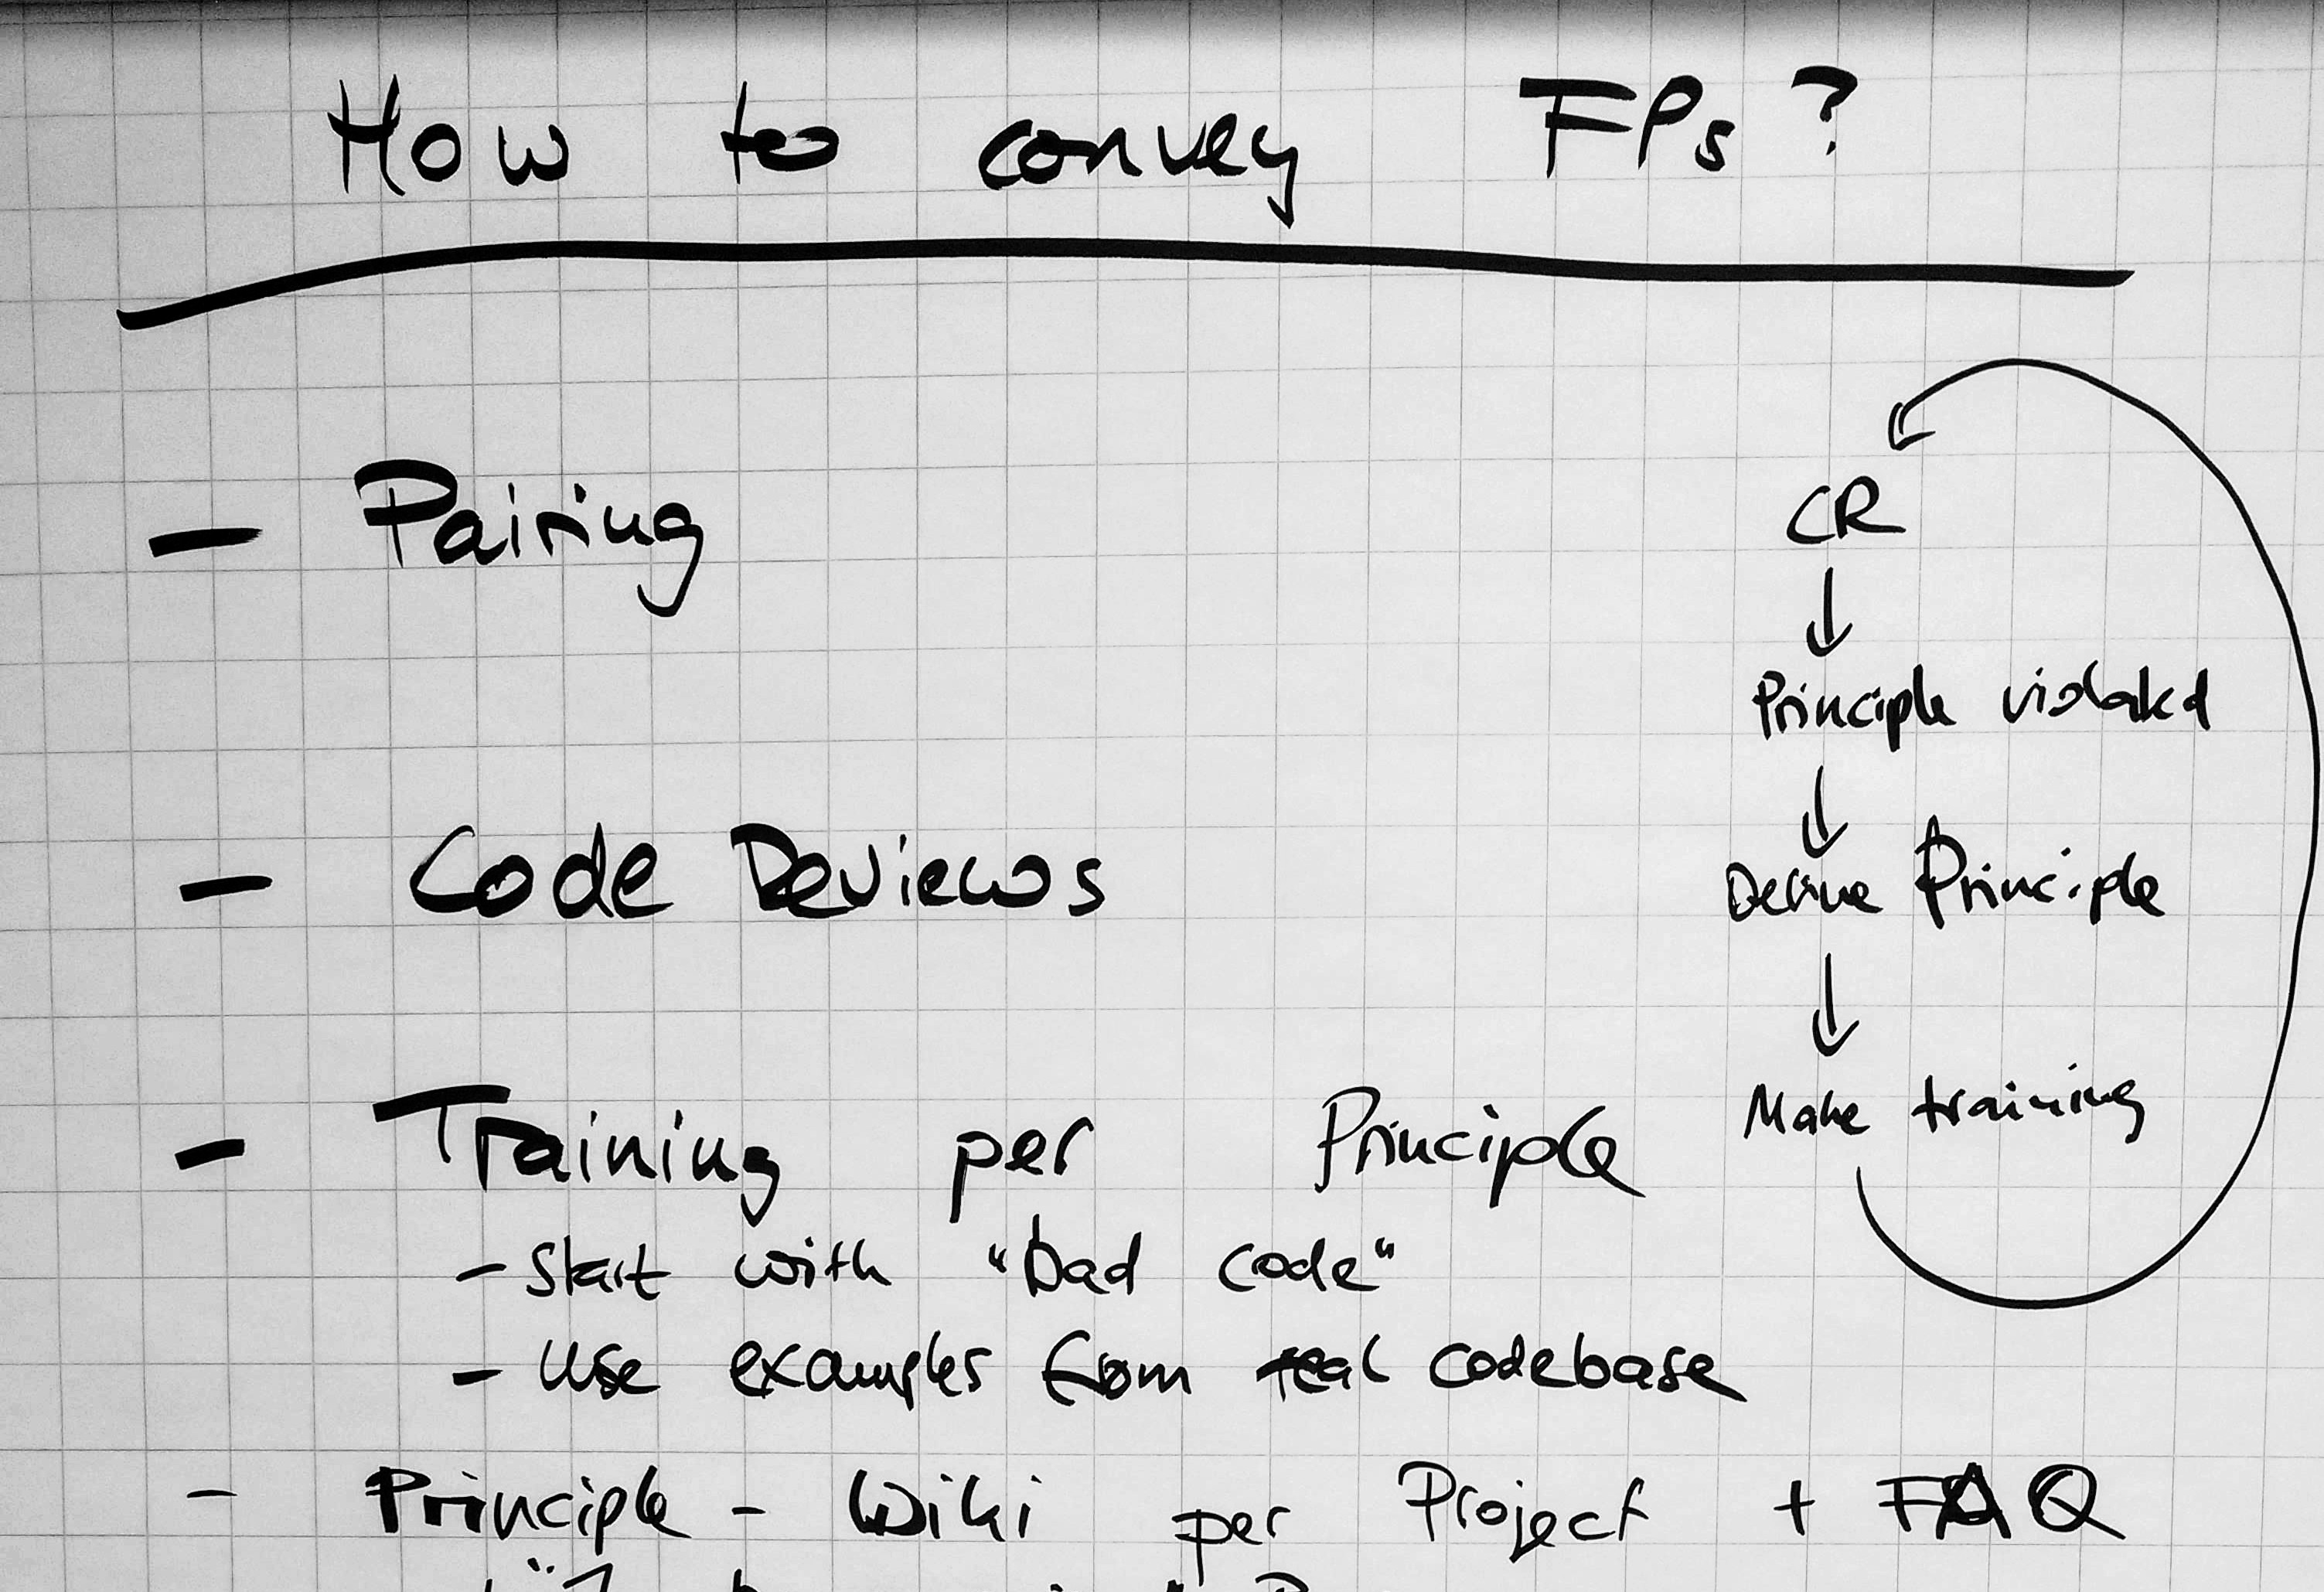 How to convey FPs?
- Pairing
- Code Reviews
- Training per Principle
- Start with "bad code"
- Use examples from real codebase
- Principle - Wiki per Project + FAQ
CR
↓
Principle violated
↓
Define Principle
↓
Make training